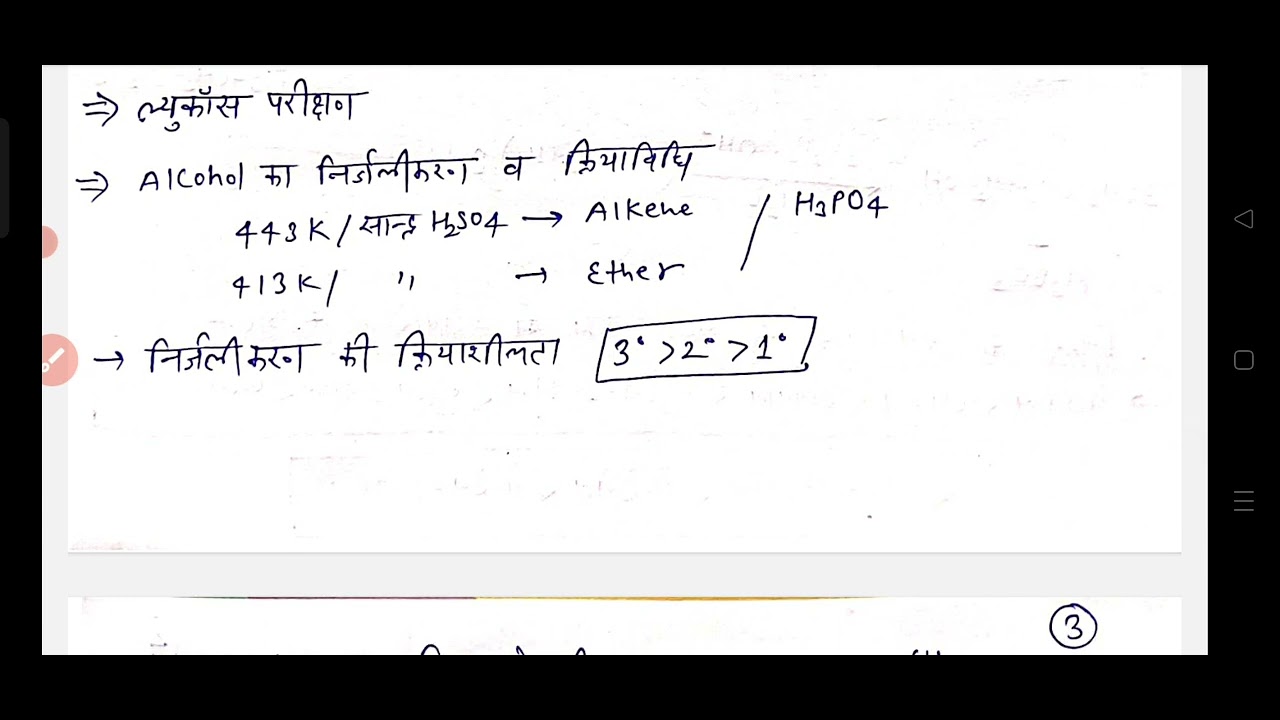 ⇒ ल्युकॉस परीक्षण
⇒ Alcohol का निर्जलीकरण व क्रियाविधि
443K / सान्द्र H2SO4 → Alkene / H3PO4
413K / " → Ether
→ निर्जलीकरण की क्रियाशीलता 3° > 2° > 1°
3